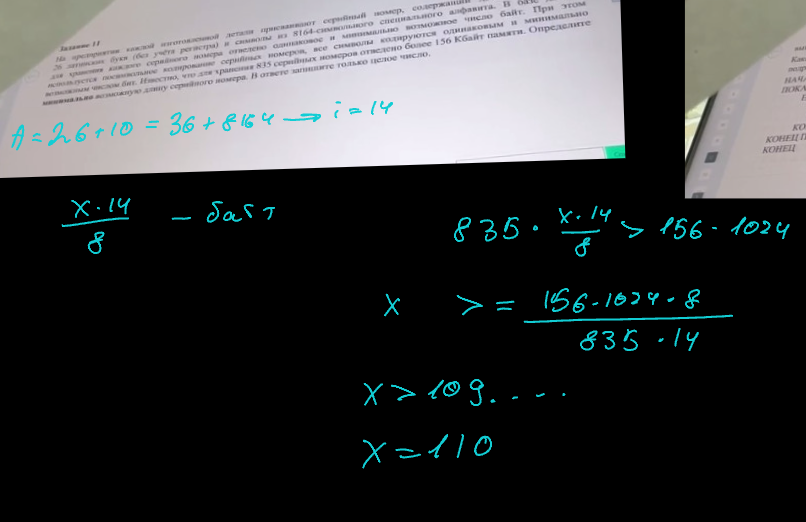 Задание 11
На предприятии каждой изготовленной детали присваивают серийный номер, содержащий
26 латинских букв (без учёта регистра) и символы из 8164-символьного специального алфавита. В базе
для хранения каждого серийного номера отведено одинаковое и минимально возможное число байт. При этом
используется посимвольное кодирование серийных номеров, все символы кодируются одинаковым и минимально
возможным числом бит. Известно, что для хранения 835 серийных номеров отведено более 156 Кбайт памяти. Определите
минимально возможную длину серийного номера. В ответе запишите только целое число.
A = 26 + 10 = 36 + 8164 → i = 14
НАЧА
ПОКА
КО
КОНЕЦ П
КОНЕЦ
x · 14 / 8 – байт
835 · x · 14 / 8 > 156 · 1024
x > = 156 · 1024 · 8 / 835 · 14
x > 109. . . . .
x = 110